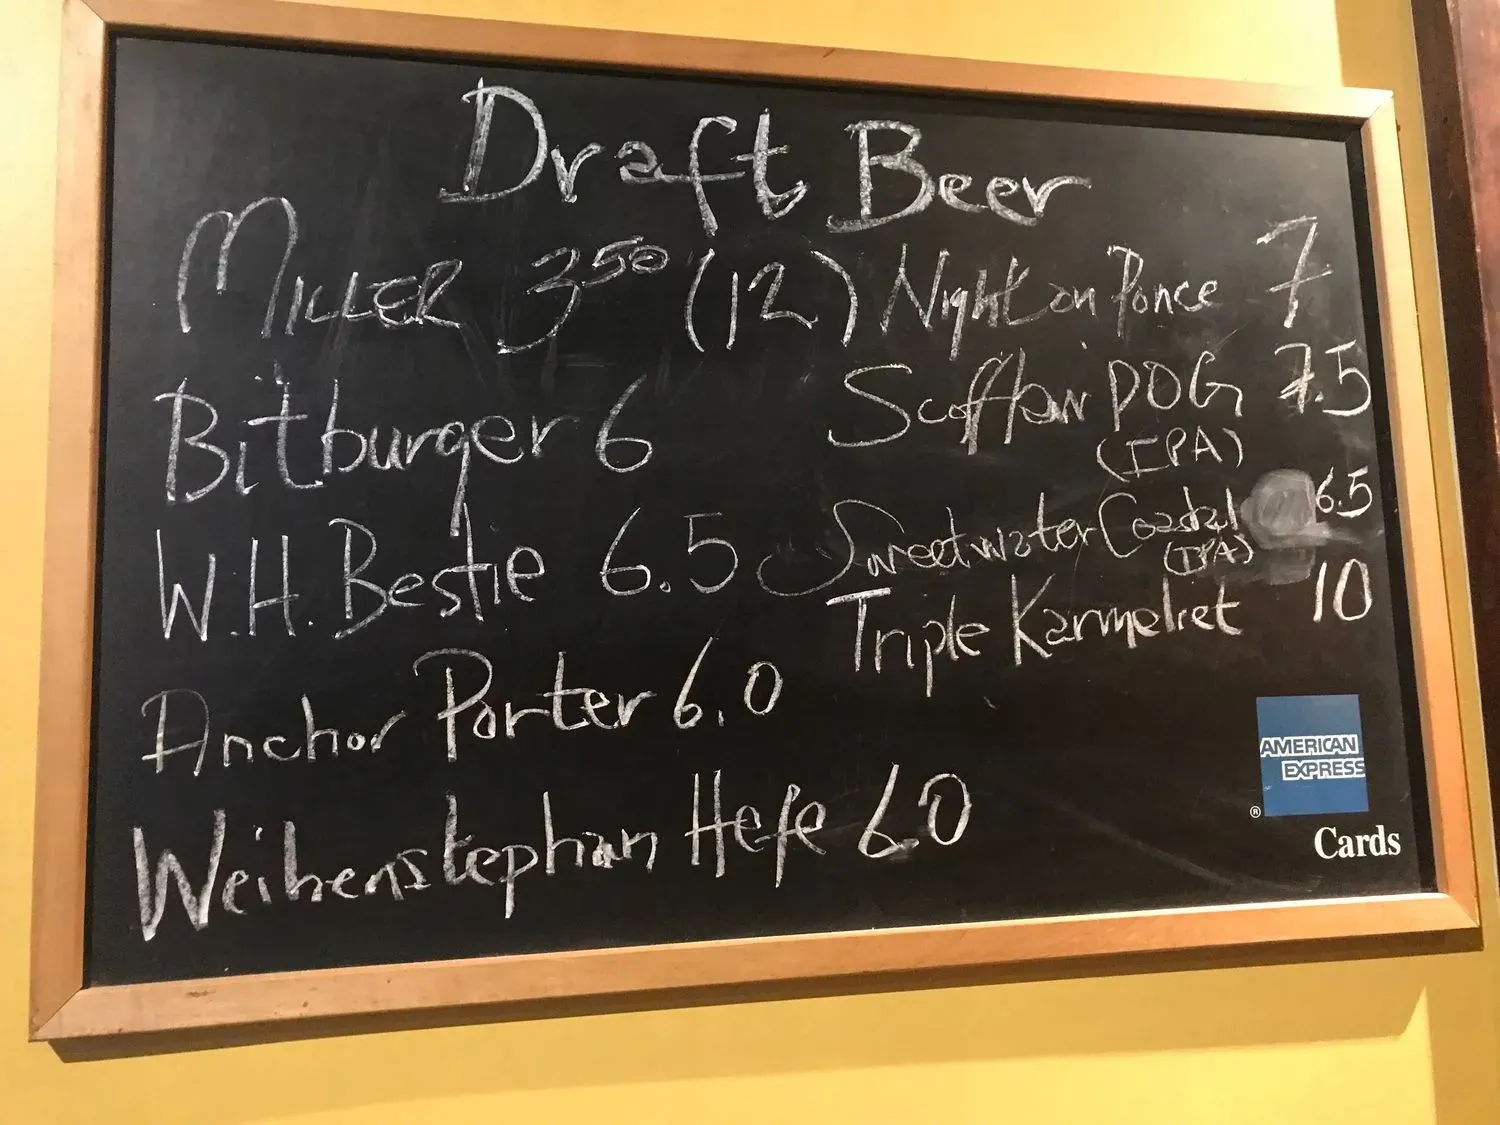 Draft Beer
MILLER 3 50 (12)
Bitburger 6
W.H. Bestie 6.5
Anchor Porter 6.0
Weihenstephan Hefe 6.0
Night on Ponce 7
Scofflaw POG 7.5
(IPA)
Sweetwater Coastal 6.5
(IPA)
Triple Karmeliet 10
AMERICAN
EXPRESS
®
Cards